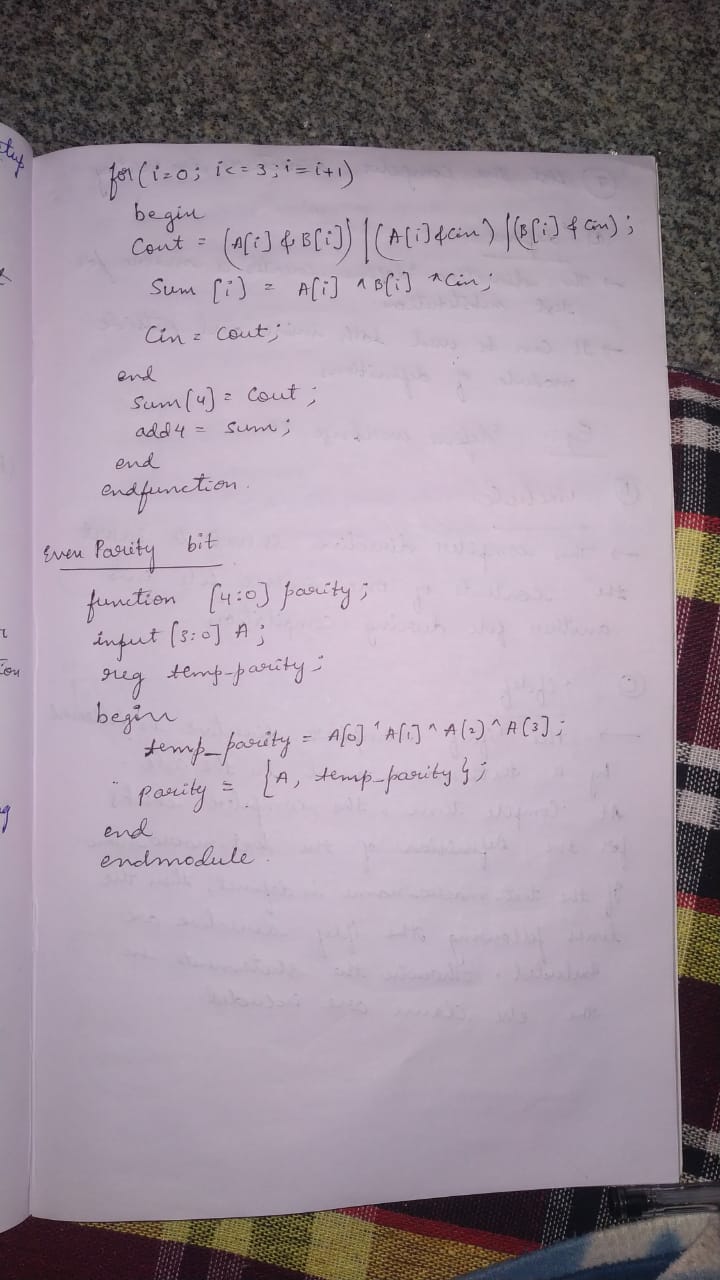 for(i=0; i<=3; i=i+1)
begin
Cout = (A[i] & B[i]) | (A[i] & cin) | (B[i] & Cin);
Sum [i] = A[i] ^ B[i] ^ Cin;
Cin = Cout;
end
sum[4] = Cout;
add4 = sum;
end
endfunction.
Even Parity bit
function [4:0] parity;
input [3:0] A;
reg temp-parity;
begin
temp_parity = A[0] ^ A[1] ^ A(2) ^ A[3];
Parity = {A, temp-parity};
end
endmodule.